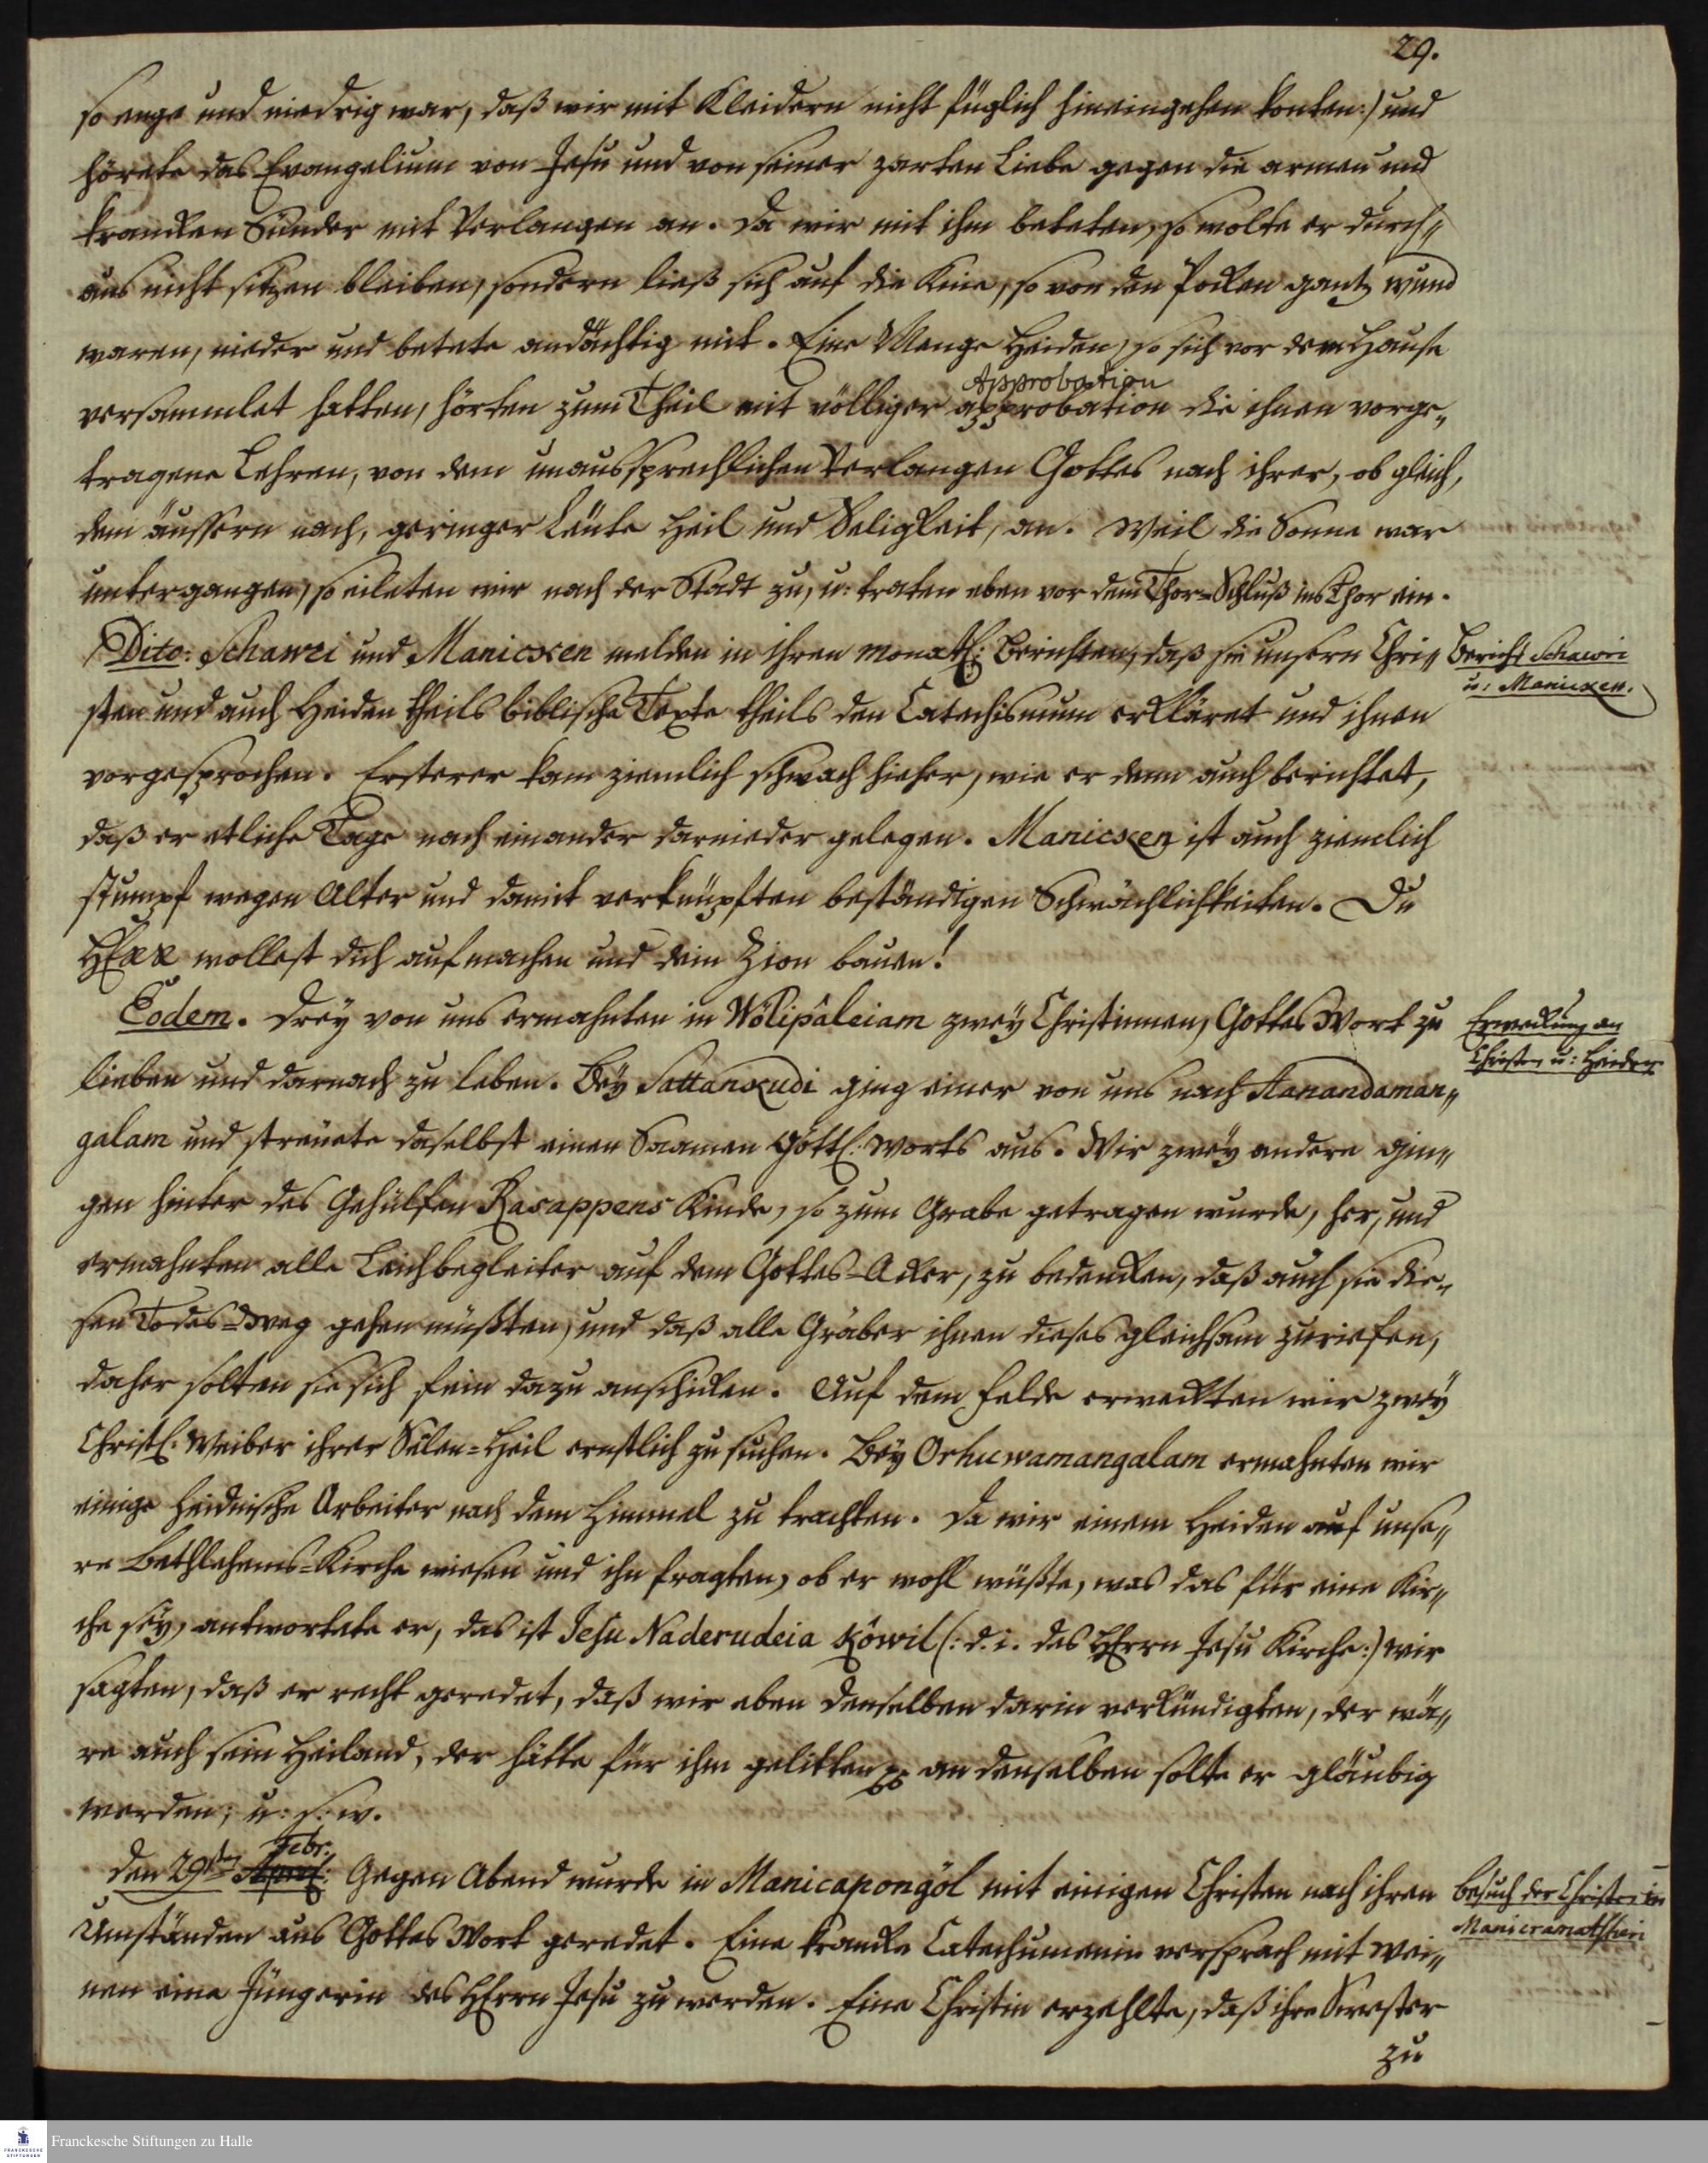 29.
so enge und niedrig war, daß wir mit Kleidern nicht füglich hineingehen konten:) und
hörete das Evangelium von Jesu und von seiner zarten Liebe gegen die armen und
krancken Sünder mit Verlangen an. Da wir mit ihm beteten, so wolte er durch„
aus nicht sitzen bleiben, sondern ließ sich auf die Knie, so von den Pocken gantz wund
waren, nieder und betete andächtig mit. Eine Menge Heiden, so sich vor dem Hause
Approbation
versammlet hatten, hörten zum Theil mit völliger approbation die ihnen vorge„
tragene Lehren, von dem unaussprechlichen Verlangen Gottes nach ihrer, ob gleich,
dem äussern nach, geringer Leute Heil und Seligkeit, an. Weil die Sonne war
untergangen, so eileten wir nach der Stadt zu, u: traten eben vor dem Thor-Schluß ins Thor ein.
Dito: Schawri und Manicken melden in ihren monatl: Berichten, daß sie unsern Chri„
Bericht Schawri
u: Manicken.
sten und auch Heiden theils biblische Texte theils den Catechismum erkläret und ihnen
vorgesprochen. Ersterer kam ziemlich schwach hieher, wie er denn auch berichtet,
daß er etliche Tage nach einander darnieder gelegen. Manicken ist auch ziemlich
stumpf wegen Alter und damit verknüpften beständigen Schwächlichkeiten. Du
HErr wollest dich aufmachen und dein Zion bauen!
Eodem. Drey von uns ermahnten in Wölipâleiam zwey Christinnen, Gottes Wort zu
Erweckung an
Christen u: Heiden
lieben und darnach zu leben. Bey Sattankudi ging einer von uns nach Aanandaman„
galam und streuete daselbst einen Saamen Göttl: Worts aus. Wir zwey andere gin„
gen hinter des Gehülfen Rasappens Kinde, so zum Grabe getragen wurde, her, und
ermahnten alle Leichbegleiter auf dem Gottes-Acker, zu bedencken, daß auch sie die„
sen Todes-Weg gehen müßten, und daß alle Gräber ihnen dieses gleichsam zuriefen,
daher solten sie sich fein dazu anschicken. Auf dem Felde erweckten wir zwey
Christl: Weiber ihrer Selen-Heil ernstlich zu suchen. Bey Orhuwamangalam ermahnten wir
einige heidnische Arbeiter nach dem Himmel zu trachten. Da wir einem Heiden auf unse„
re Bethlehems-Kirche wiesen und ihn fragten, ob er wohl wüßte, was das für eine Kir„
che sey, antwortete er, das ist Jesu Naderudeia Köwil (: d. i. des HErrn Jesu Kirche:) wir
sagten, daß er recht geredet, daß wir eben denselben darin verkündigten, der wä„
re auch sein Heiland, der hätte für ihm gelitten an denselben solte er gläubig
werden, u: s: w.
Febr.
den 29sten April: Gegen Abend wurde in Manicapongöl mit einigen Christen nach ihren
Besuch der Christen in
Manicramatshieri
Umständen aus Gottes Wort geredet. Eine krancke Catechumenin versprach mit Wei„
nen eine Jüngerin des HErrn Jesu zu werden. Eine Christin erzehlte, daß ihre Swester
zu
Franckesche Stiftungen zu Halle
FRANCKESCHE STIFTUNGEN